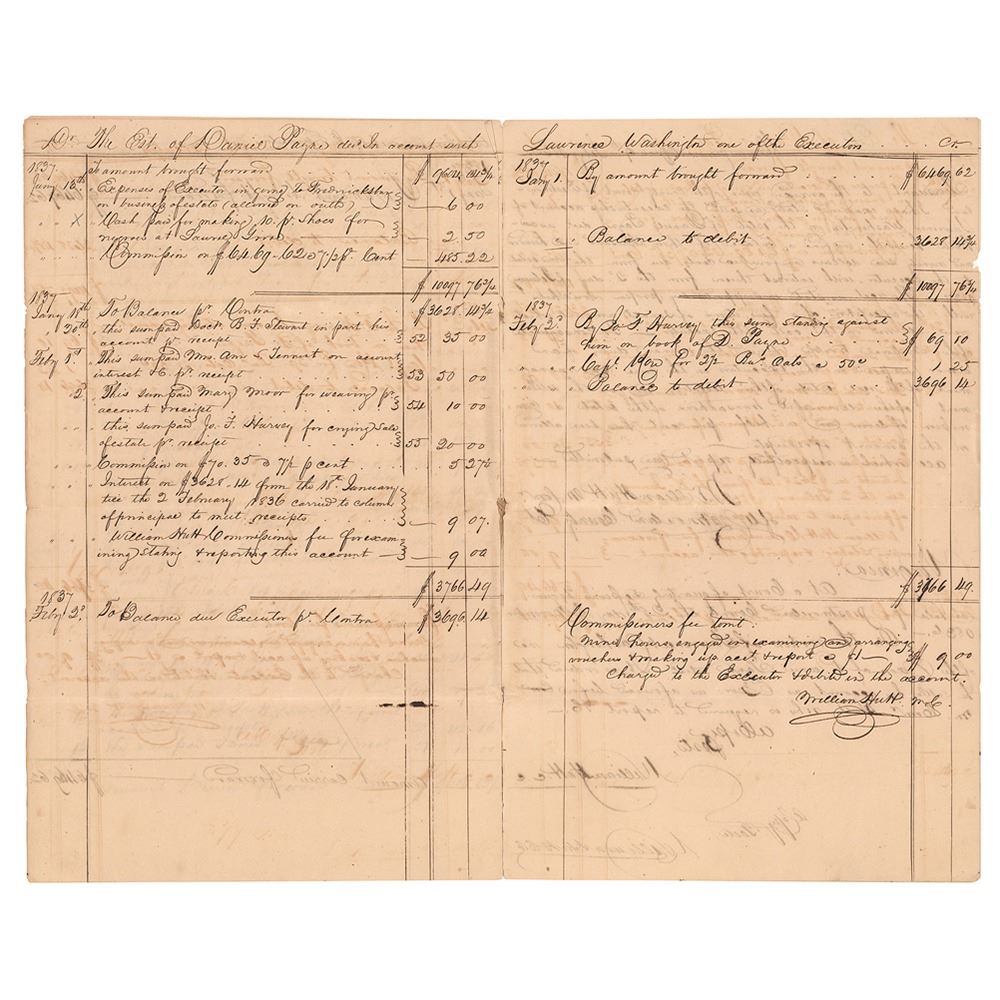 Dr. The Est. of Daniel Payne decd In account with
1837
Jany 18th To amount brought forward $ 9604 04 3/4
" Expenses of Executor in going to Fredricksburg
on business of estate (allowed on oath) 6 00
" X " Cash paid for making 10 pr Shoes for
negroes at Laurel Grove 2.50
" Commission on $6469-62 @ 7 1/2 pr. Cent 485.22
$ 10097 76 3/4
1837
Jany 18th To Balance pr Contra $ 3628 14 3/4
20th this sum paid Doct. B. F. Stewart in part his
account pr receipt 52 35 00
Feby 1st " This sum paid Mrs. Ann S. Tennart on account
interest &c. pr receipt 53 50 00
2d " This sum paid Mary Moor for weaving pr
account & receipt 54 10 00
" this sum paid Jo. F. Harvey for crying Sale
of estate pr receipt 55 20 00
" Commission on $70.35 @ 7 1/2 p cent 5 27 1/2
" Interest on $3628.14 from the 18th January
till the 2 February 1836 carried to column
of principal to meet receipts 9 07.
" William Hutt Commissioners fee for exam
ining Stating & reporting this account 9 00
$ 3766 49
1837
Feby 2d To Balance due Executor pr Contra $ 3696 14
Lawrence Washington one of the Executors Cr.
1837
Jany 1. By amount brought forward $ 6469 62
" Balance to debit 3628 14 3/4
$ 10097 76 3/4
1837
Feby 2d By Jo. F. Harvey this sum standing against
him on book of D. Payne $ 69 10
" Capt. for 2 1/2 Bu. Oats @ 50c 1 25
Balance to debit 3696 14
$ 3766 49
Commissioners fee tomt.
Nine hours engaged in examining and arranging
vouchers & making up acct. & report @ $1 $ 9 00
Charged to the Executor & debited in the account.
William Hutt. M.C.